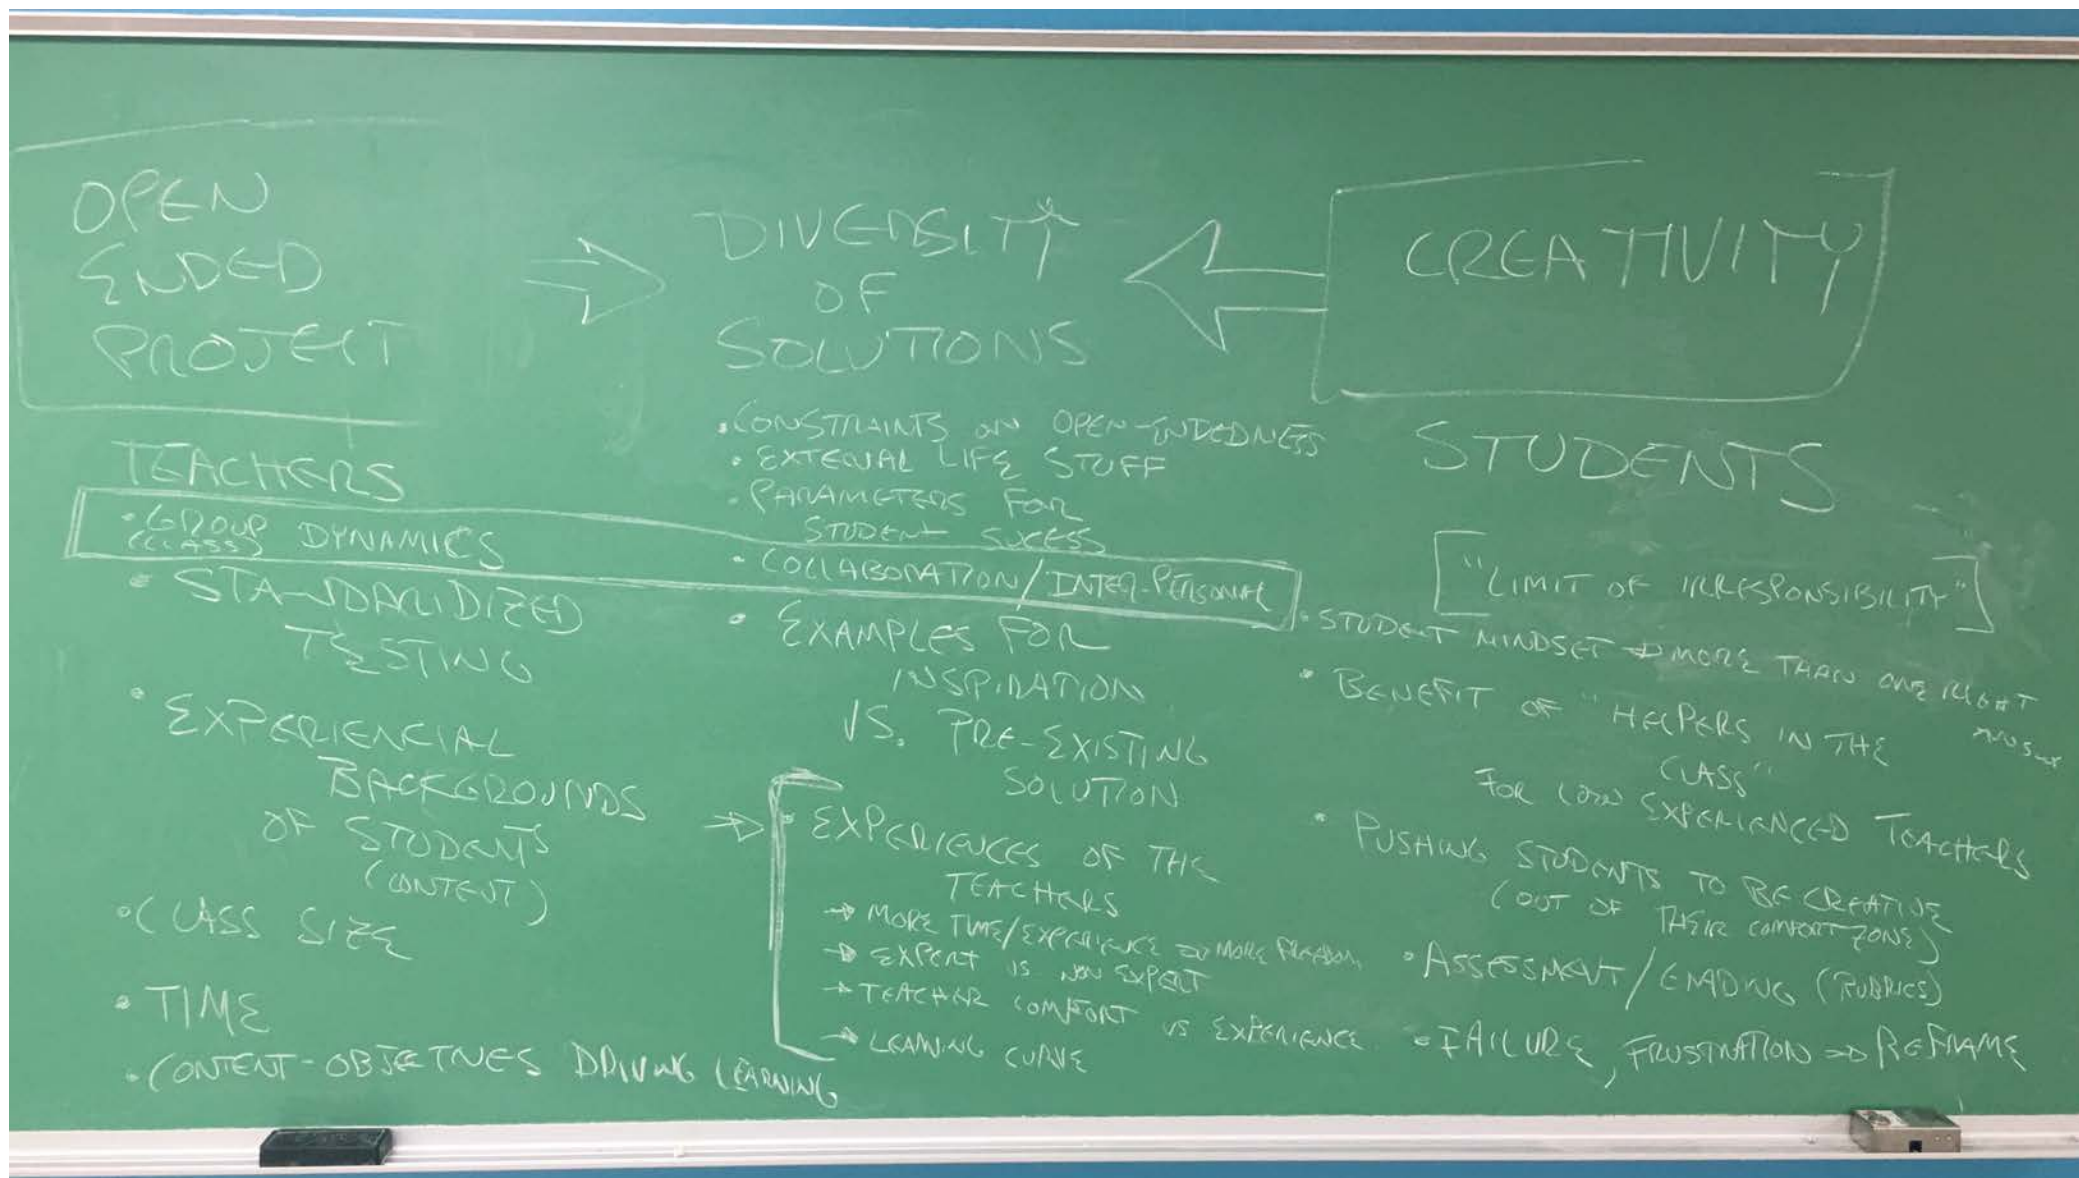 OPEN
ENDED
PROJECT
TEACHERS
• GROUP DYNAMICS
(CLASS)
• STANDARIDIZED
TESTING
• EXPERIENCIAL
BACKGROUNDS
OF STUDENTS
(CONTENT)
• CLASS SIZE
• TIME
• CONTENT-OBJECTIVES DRIVING LEARNING
DIVERSITY
OF
SOLUTIONS
• CONSTRAINTS ON OPEN-ENDEDNESS
• EXTERNAL LIFE STUFF
• PARAMETERS FOR
STUDENT SUCESS
• COLLABORATION/INTER-PERSONAL
• EXAMPLES FOR
INSPIRATION
VS. PRE-EXISTING
SOLUTION
⇒ • EXPERIENCES OF THE
TEACHERS
→ MORE TIME/EXPERIENCE ⇒ MORE FREEDOM
→ EXPERT VS NON EXPERT
→ TEACHER COMFORT VS EXPERIENCE
→ LEARNING CURVE
CREATIVITY
STUDENTS
["LIMIT OF IRRESPONSIBILITY"]
• STUDENT MINDSET ⇒ MORE THAN ONE RIGHT
ANSWER
• BENEFIT OF "HELPERS IN THE
CLASS"
FOR LOW EXPERIENCED TEACHERS
• PUSHING STUDENTS TO BE CREATIVE
(OUT OF THEIR COMFORT ZONE)
• ASSESSMENT/GRADING (RUBRICS)
• FAILURE, FRUSTRATION ⇒ REFRAME